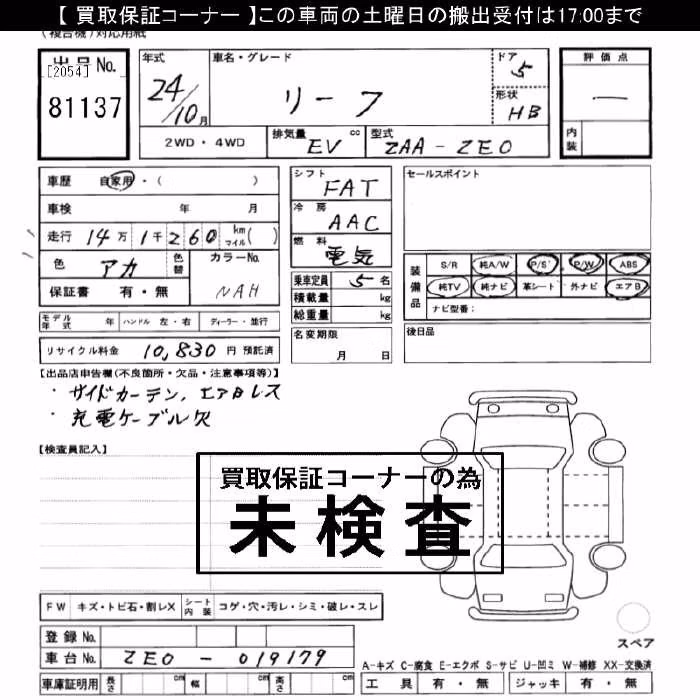 【 買取保証コーナー 】この車両の土曜日の搬出受付は17:00まで
(複合機)対応用紙
出品No.
[2054]
81137
年式
24/10月
車名・グレード
リーフ
ドア
5
形状
HB
評価点
―
内装
2WD・4WD
排気量 EV cc
型式 ZAA-ZE0
車歴 自家用・( )
車検 年 月
走行 14万1千260 km マイル( )
色 アカ
色替
カラーNo.
NAH
保証書 有・無
シフト FAT
冷房 AAC
燃料 電気
乗車定員 5名
積載量 kg
総重量 kg
セールスポイント
装備品
S/R 純A/W P/S P/W ABS
純TV 純ナビ 革シート 外ナビ エアB
ナビ型番:
モデル年式 年 ハンドル 左・右 ディーラー・並行
名変期限
月 日
後日品
リサイクル料金 10,830円 預託済
【出品店申告欄(不良箇所・欠品・注意事項等)】
・サイドカーテン、エアBレス
・充電ケーブル欠
【検査員記入】
買取保証コーナーの為
未検査
FW キズ・トビ石・割レX シート内装 コゲ・穴・汚レ・シミ・破レ・スレ
登録No.
車台No. ZE0-019179
車庫証明用 長さ cm 幅 cm 高さ cm
スペア
A-キズ C-腐食 E-エクボ S-サビ U-凹ミ W-補修 XX-交換済
工具 有・無 ジャッキ 有・無